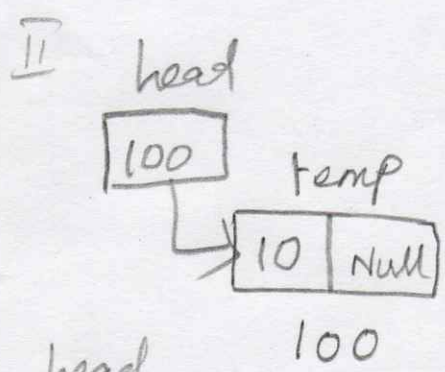 II
head
100
temp
10 Null
100
head